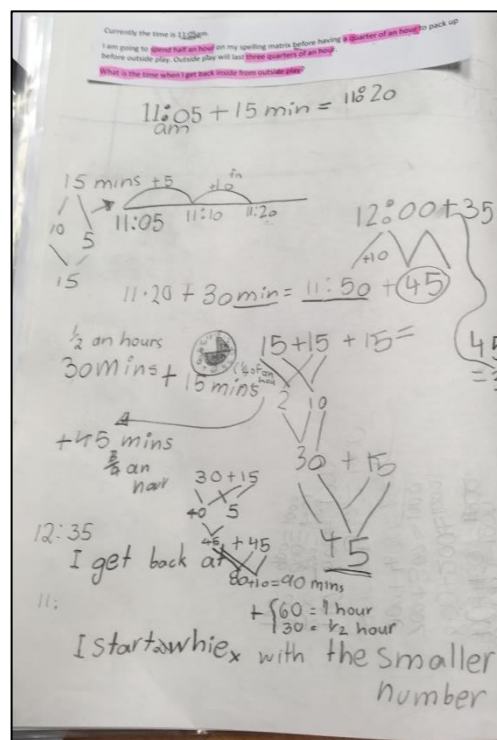 Currently the time is 11:05am.
I am going to spend half an hour on my spelling matrix before having a quarter of an hour to pack up
before outside play. Outside play will last three quarters of an hour.
What is the time when I get back inside from outside play?
11:05 + 15 min = 11:20
am
15 mins +5 +10
10 5
15
11:05 11:10 11:20
12:00+35
+10
11.20 + 30 min = 11:50 + 45
1/2 an hours
30mins + 15 mins
15+15+15=
2 10
+45 mins
3/4 an
hour
30 + 15
30+15
40 5
45
45 + 45
12:35
I get back at
80+10=90 mins
11:
+ 60 = 1 hour
30 = 1/2 hour
I start with the smaller
number